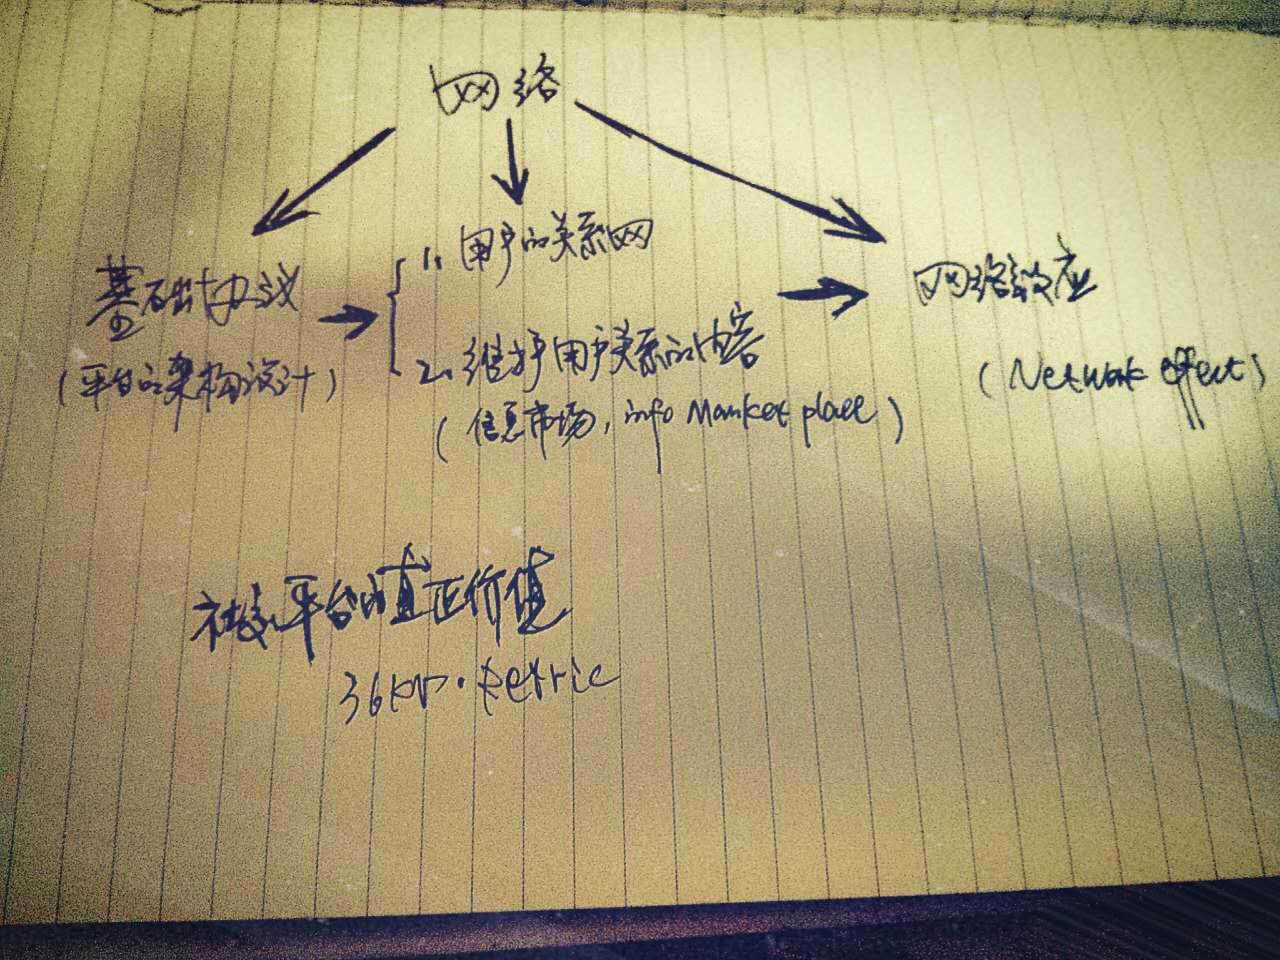 网络
基础协议
(平台的架构设计)
1. 用户的关系网
2. 维护用户关系的内容
(信息市场, info Market place)
网络效应
(Network effect)
社交平台的真正价值
36Kr·